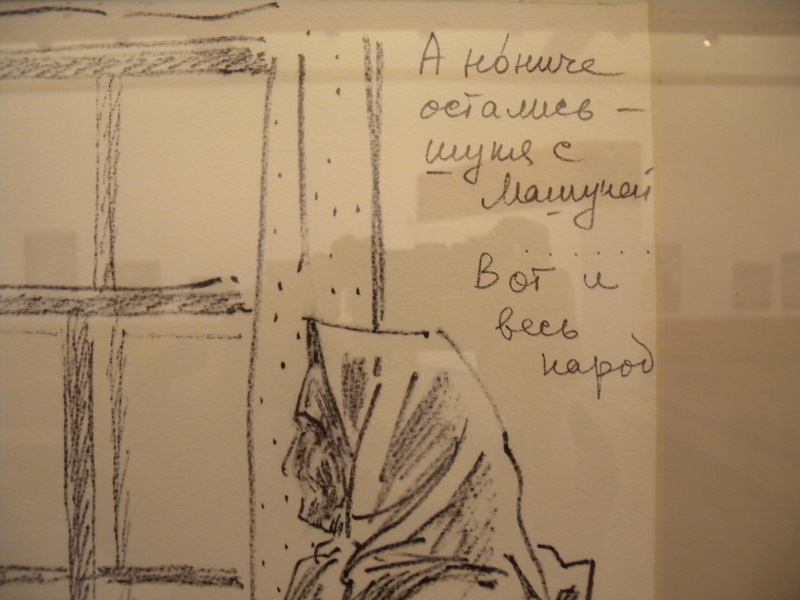 А но́ниче
остались –
шуня с
Машуней
. . . . . . .
Вот и
весь
народ